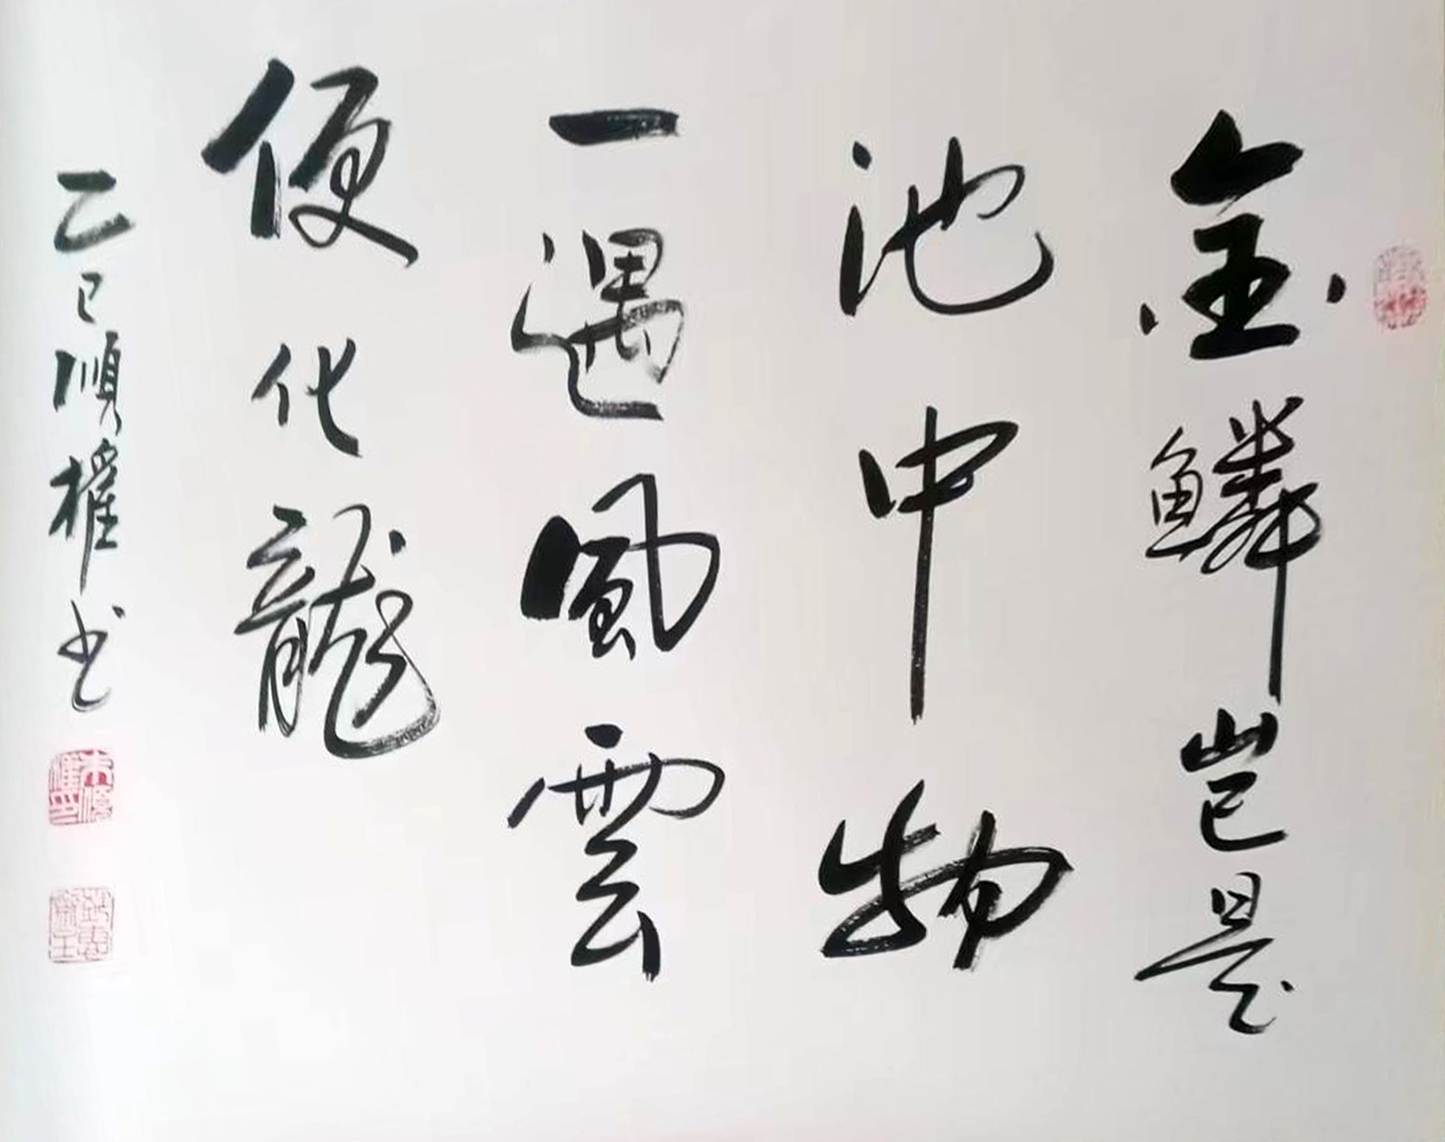 金鳞岂是
池中物
一遇風雲
便化龍
乙巳順權书